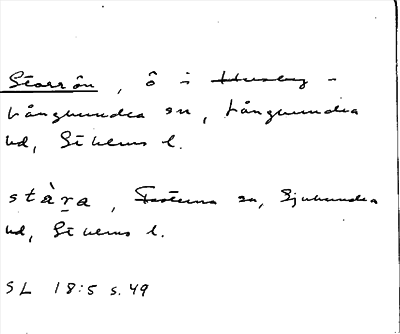 Storrön, ö i Husby -
Långhundra sn, Långhundra
hd, St hlms l.
stàra, Fasterna sn, Sjuhundra
hd, St hlms l.
SL 18:5 s. 49